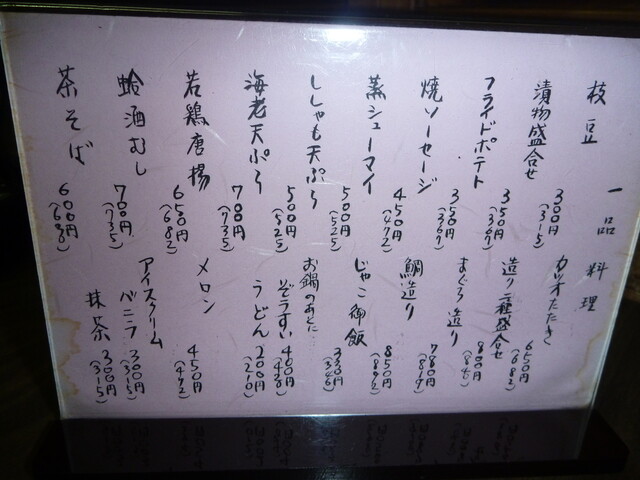 一品料理
枝豆 300円(315)
漬物盛合せ 350円(367)
フライドポテト 350円(367)
焼ソーセージ 450円(472)
蒸シューマイ 500円(525)
ししゃも天ぷら 500円(525)
海老天ぷら 700円(735)
若鶏唐揚 650円(682)
蛤酒むし 700円(735)
茶そば 600円(630)
カツオたたき 650円(682)
造り二種盛合せ 800円(840)
まぐろ造り 780円(819)
鯛造り 850円(892)
じゃこ御飯
お鍋のあとに…
ぞうすい 400円(420)
うどん 200円(210)
メロン 450円(472)
アイスクリーム
バニラ 300円(315)
抹茶 300円(315)